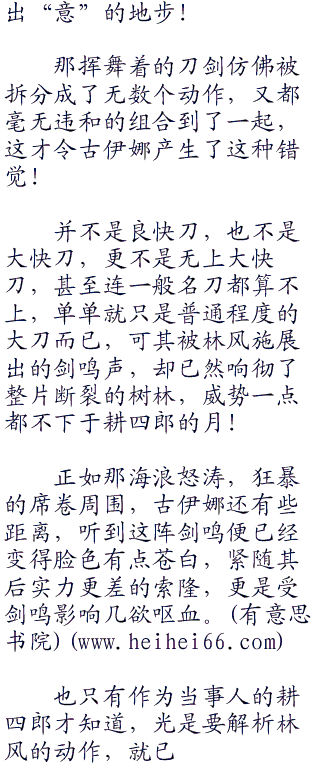 出“意”的地步！
　　那挥舞着的刀剑仿佛被
拆分成了无数个动作，又都
毫无违和的组合到了一起，
这才令古伊娜产生了这种错
觉！
　　并不是良快刀，也不是
大快刀，更不是无上大快
刀，甚至连一般名刀都算不
上，单单就只是普通程度的
大刀而已，可其被林风施展
出的剑鸣声，却已然响彻了
整片断裂的树林，威势一点
都不下于耕四郎的月！
　　正如那海浪怒涛，狂暴
的席卷周围，古伊娜还有些
距离，听到这阵剑鸣便已经
变得脸色有点苍白，紧随其
后实力更差的索隆，更是受
剑鸣影响几欲呕血。(有意思
书院)(www.heihei66.com)
　　也只有作为当事人的耕
四郎才知道，光是要解析林
风的动作，就已